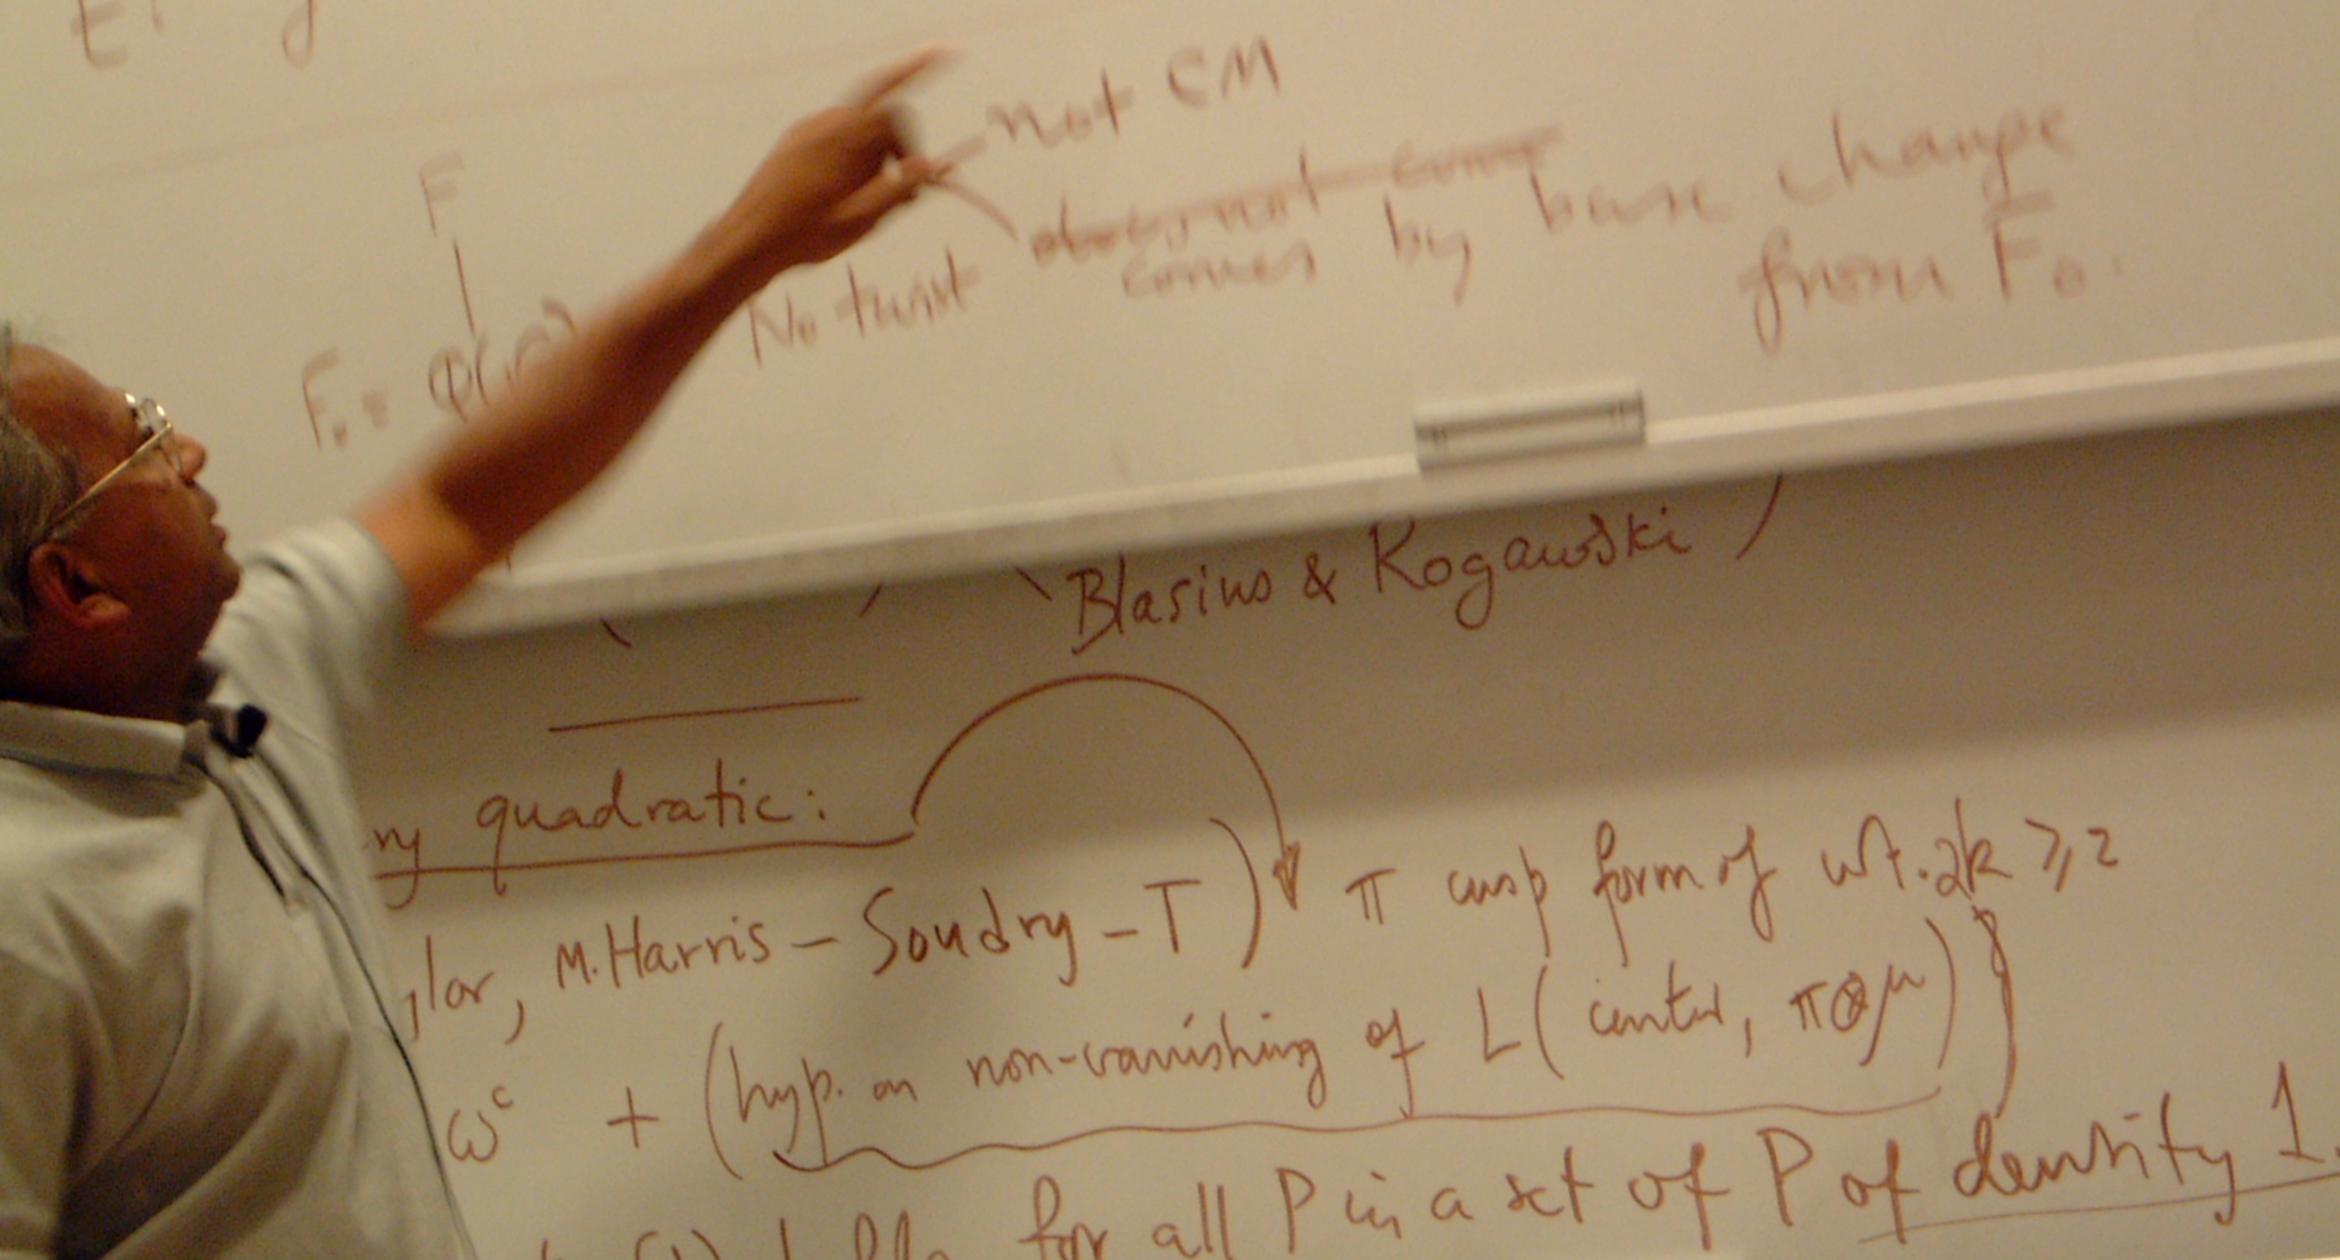 not CM
F
No twist comes by base change
from F₀.
F₀ =
Blasius & Rogawski )
quadratic:
M. Harris – Soudry – T ) π cusp form of wt. 2k ≥ 2
ω^c + (hyp. on non-vanishing of L( center, π⊗μ) )
for all P in a set of P of density 1.